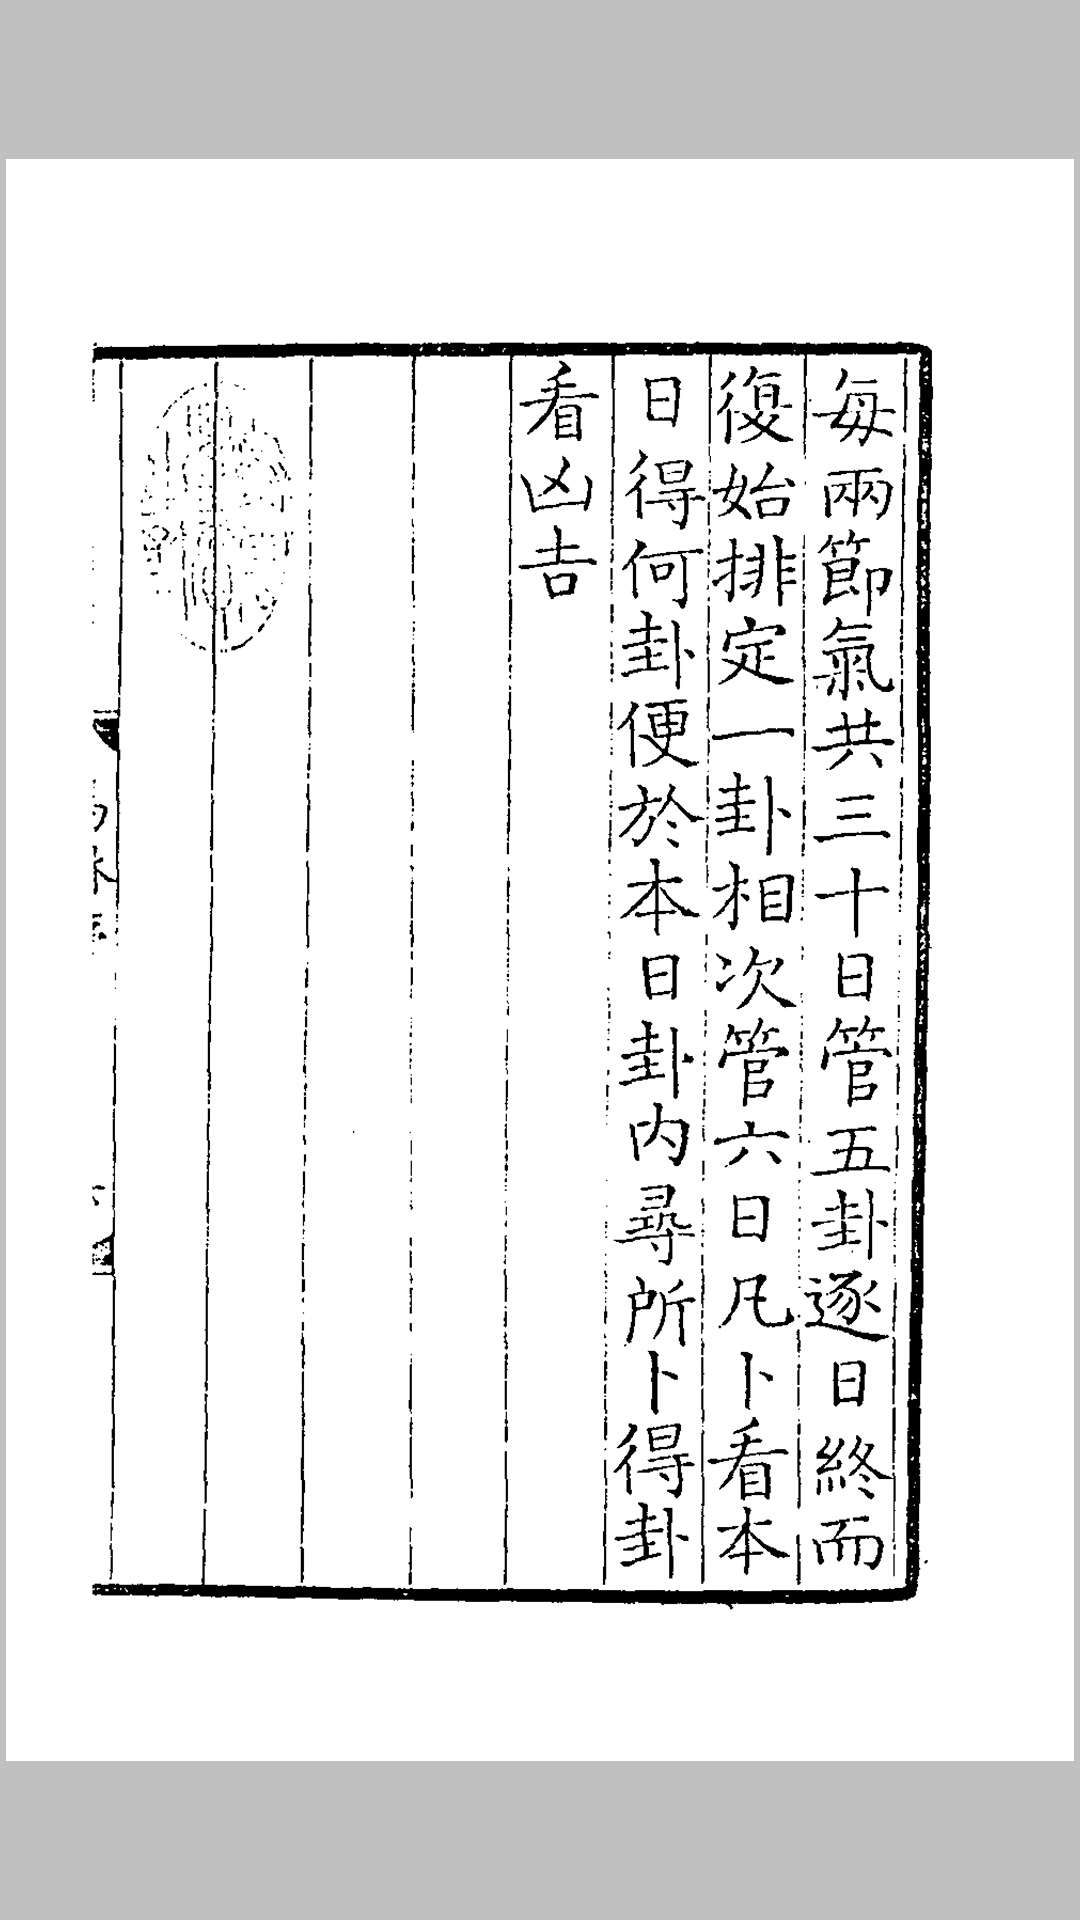 每兩節氣共三十日管五卦逐日終而
復始排定一卦相次管六日凡卜看本
日得何卦便於本日卦内尋所卜得卦
看凶吉